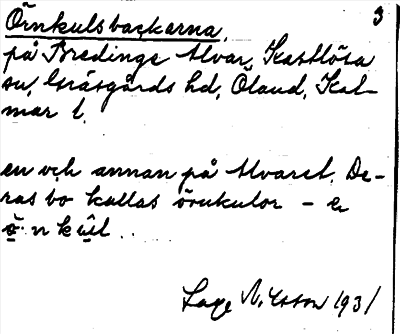 Örnkulsbackarna. 3
på Bredinge Alvar, Kastlösa
sn, Gräsgårds hd, Öland, Kal-
mar l.
en och annan på Alvaret. De-
ras bo kallas örnkulor – e
ö·n kûl ..
Lage Nilsson 1931